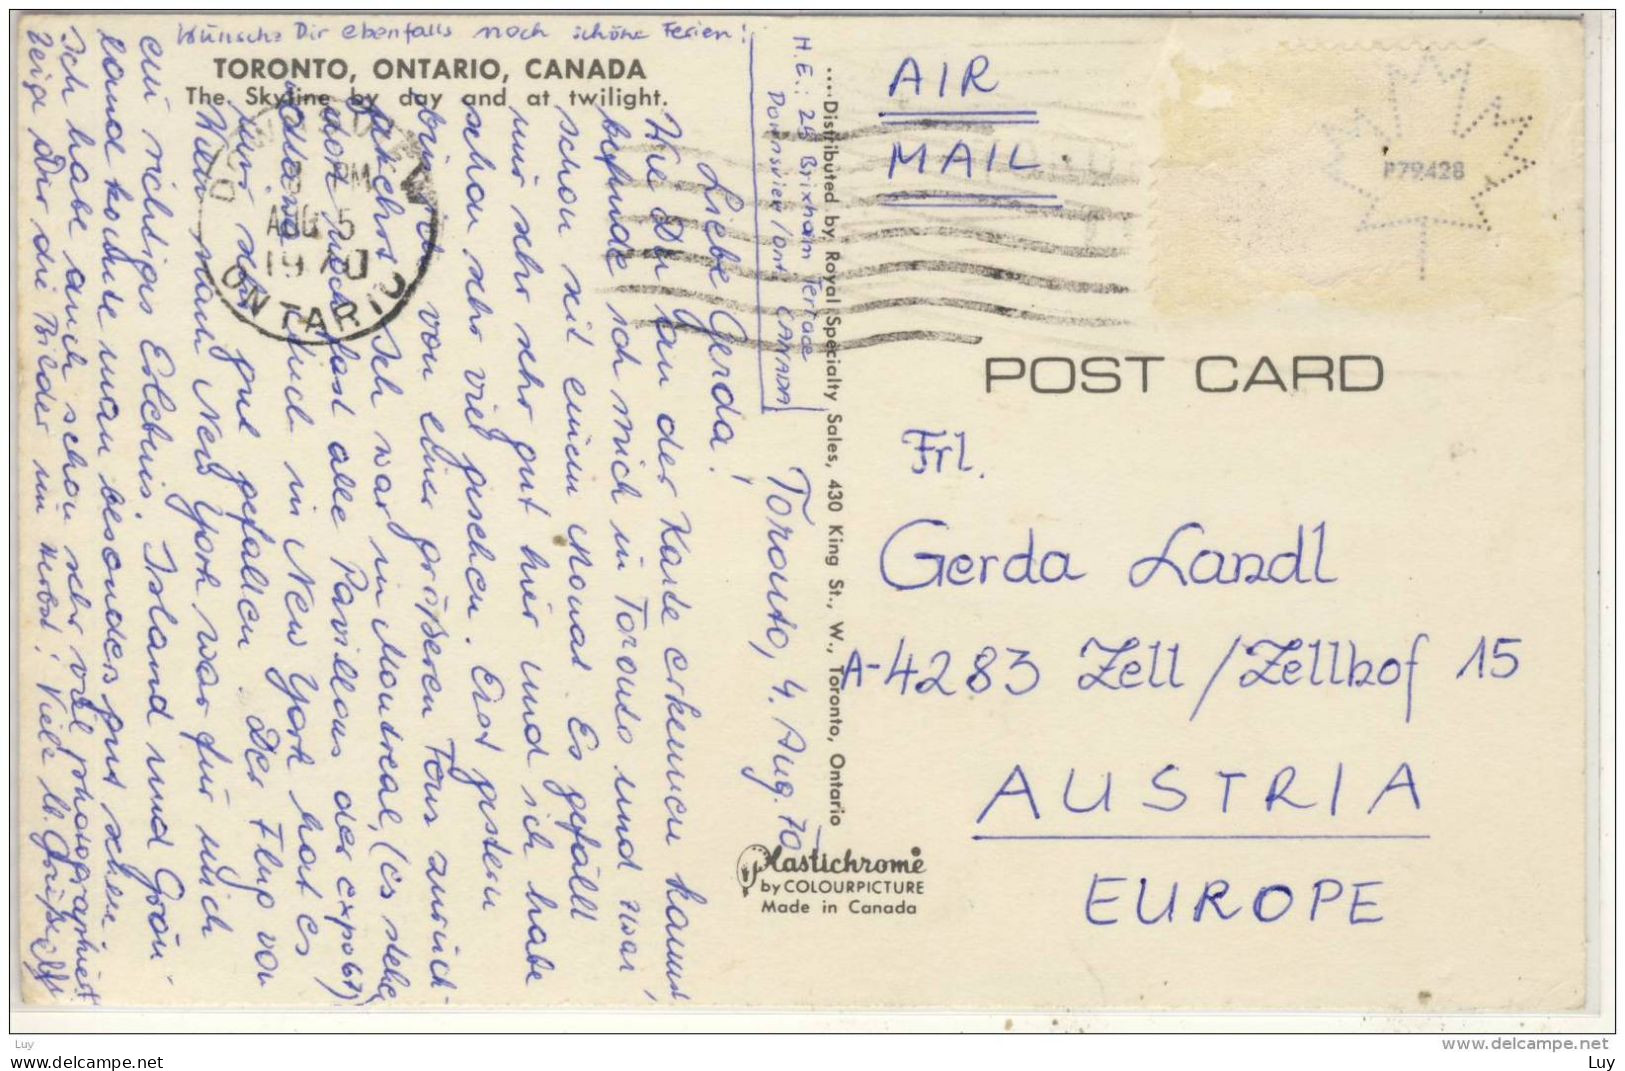 Wünsche Dir ebenfalls noch schöne Ferien!
TORONTO, ONTARIO, CANADA
The Skyline by day and at twilight.
H.E.: 28 Brixham Terrace
Downsview/Ont. CANADA
Toronto, 4. Aug. 70
Liebe Gerda!
Wie Du an der Karte erkennen kannst,
befinde ich mich in Toronto und zwar
schon seit einem Monat. Es gefällt
mir sehr sehr gut hier und ich habe
schon sehr viel gesehen. Erst gestern
bin ich von einer größeren Tour zurück-
gekehrt. Ich war in Montreal, (es stehen
dort noch fast alle Pavillons der Expo 67)
Auch in New York hat es
mir sehr gut gefallen. Der Flug von
Wien nach New York war für mich
ein richtiges Erlebnis. Island und Grön-
land konnte man besonders gut sehen.
Ich habe auch schon sehr viel photographiert
zeige Dir die Bilder im Herbst! Viele lb. Grüße
DOWNSVIEW
PM
AUG 5
1970
ONTARIO
....Distributed by Royal Specialty Sales, 430 King St., W., Toronto, Ontario
Plastichrome
by COLOURPICTURE
Made in Canada
AIR
MAIL
P79428
POST CARD
Frl.
Gerda Landl
A-4283 Zell/Zellhof 15
AUSTRIA
EUROPE
Luy
www.delcampe.net
Luy
www.delcampe.net
Luy